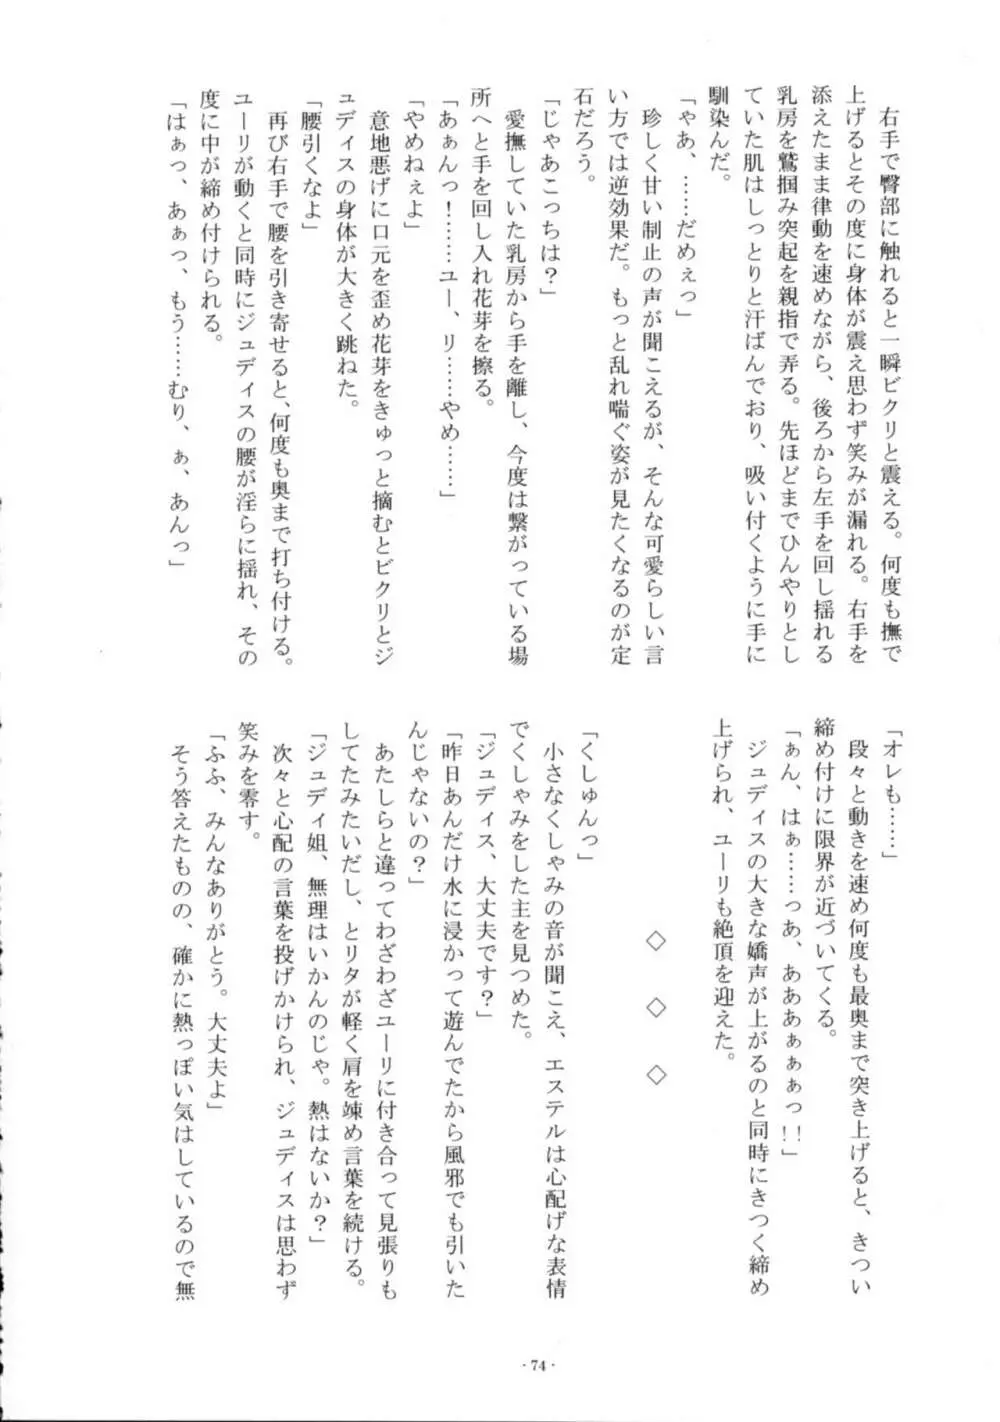 右手で臀部に触れると一瞬ビクリと震える。何度も撫で
上げるとその度に身体が震え思わず笑みが漏れる。右手を
添えたまま律動を速めながら、後ろから左手を回し揺れる
乳房を鷲掴み突起を親指で弄る。先ほどまでひんやりとし
ていた肌はしっとりと汗ばんでおり、吸い付くように手に
馴染んだ。
「ゃあ、……だめぇっ」
珍しく甘い制止の声が聞こえるが、そんな可愛らしい言
い方では逆効果だ。もっと乱れ喘ぐ姿が見たくなるのが定
石だろう。
「じゃあこっちは？」
愛撫していた乳房から手を離し、今度は繋がっている場
所へと手を回し入れ花芽を擦る。
「あぁんっ！……ユー、リ……やめ……」
「やめねぇよ」
意地悪げに口元を歪め花芽をきゅっと摘むとビクリとジ
ュディスの身体が大きく跳ねた。
「腰引くなよ」
再び右手で腰を引き寄せると、何度も奥まで打ち付ける。
ユーリが動くと同時にジュディスの腰が淫らに揺れ、その
度に中が締め付けられる。
「はぁっ、あぁっ、もう……むり、ぁ、あんっ」
「オレも……」
段々と動きを速め何度も最奥まで突き上げると、きつい
締め付けに限界が近づいてくる。
「ぁん、はぁ……っあ、あああぁぁぁっ!!」
ジュディスの大きな嬌声が上がるのと同時にきつく締め
上げられ、ユーリも絶頂を迎えた。
◇　◇　◇
「くしゅんっ」
小さなくしゃみの音が聞こえ、エステルは心配げな表情
でくしゃみをした主を見つめた。
「ジュディス、大丈夫です？」
「昨日あんだけ水に浸かって遊んでたから風邪でも引いた
んじゃないの？」
あたしらと違ってわざわざユーリに付き合って見張りも
してたみたいだし、とリタが軽く肩を竦め言葉を続ける。
「ジュディ姐、無理はいかんのじゃ。熱はないか？」
次々と心配の言葉を投げかけられ、ジュディスは思わず
笑みを零す。
「ふふ、みんなありがとう。大丈夫よ」
そう答えたものの、確かに熱っぽい気はしているので無
- 74 -